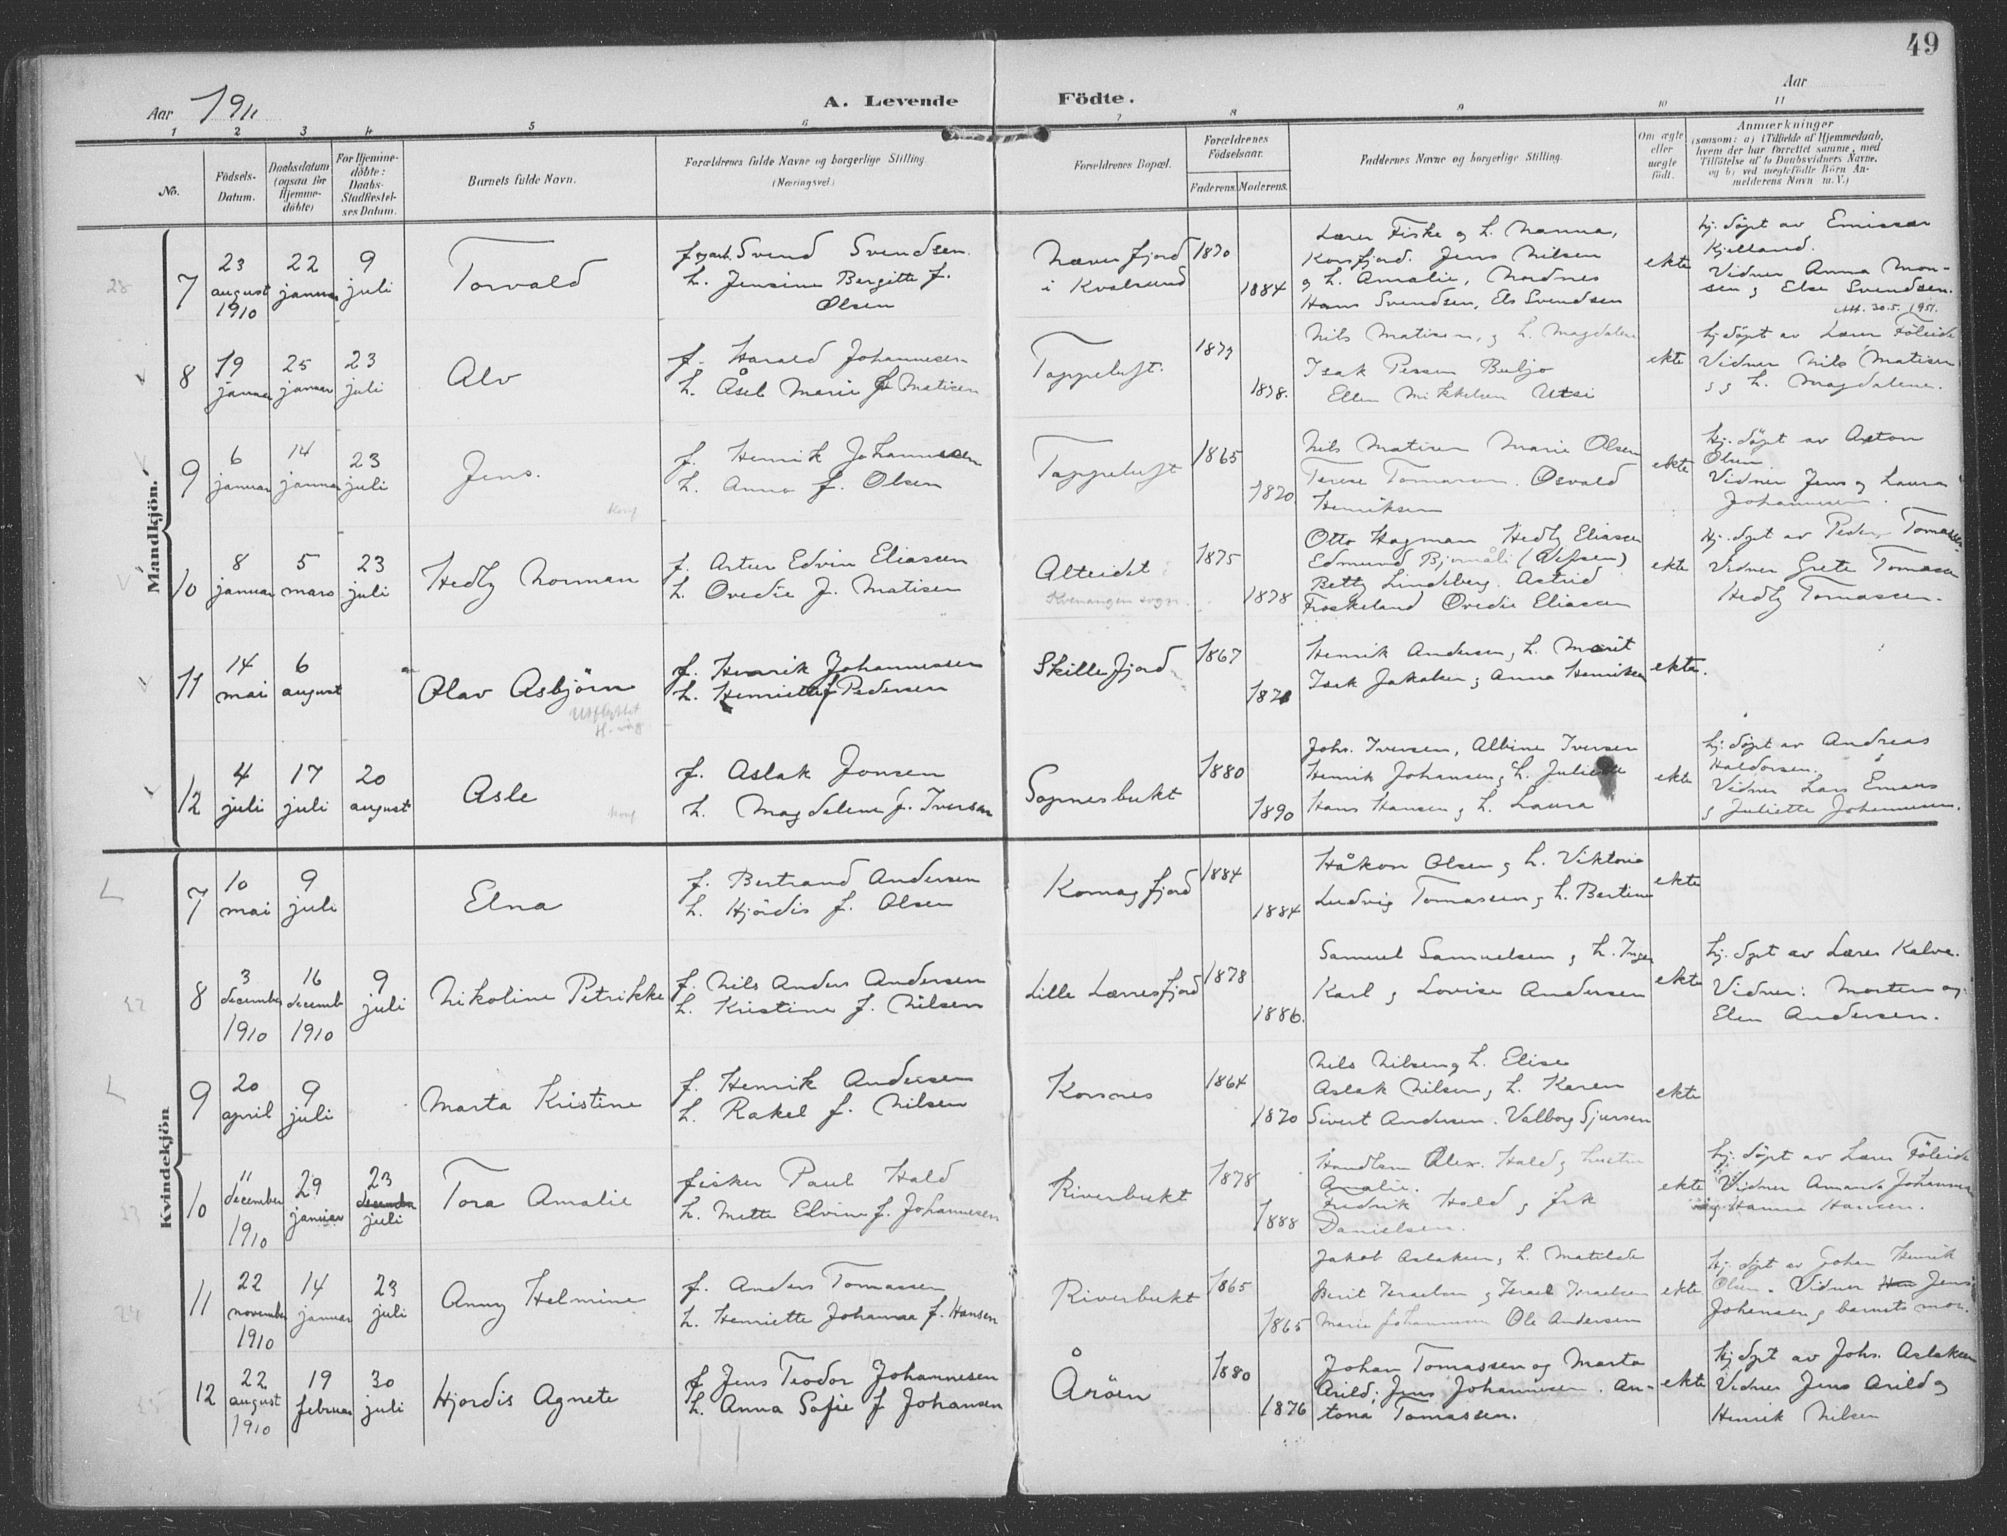 49
Aar 1911
A. Levende Födte.
Aar
1 2 3 4 5 6 7 8 9 10 11
No.
Födsels-Datum.
Daabsdatum (ogsaa for Hjemme-döbte)
For Hjemme-döbte: Daabs-Stadfæstel-ses Datum.
Barnets fulde Navn.
Forældrenes fulde Navne og borgerlige Stilling (Næringsvei.)
Forældrenes Bopæl.
Forældrenes Födselsaar.
Faderens. Moderens.
Faddernes Navne og borgerlige Stilling.
Om ægte eller uægte födt.
Anmærkninger
(saasom: a) i Tilfælde af Hjemmedaab,
hvem der har forrettet samme, med
Tilföielse af to Daabsvidners Navne.
og b) ved uægtefödte Börn An-
melderens Navn m. V.)
Mandkjön.
28
7
23 august 1910
22 januar
9 juli
Torvald
Svend Svendsen
h. Jensine Bergitte f. Olsen
Næverfjord i Kvalsund
1870
1884
Lærer Fiske og h. Nanna,
Korsfjord. Jens Nilsen
og h. Amalie, Nordnes
Hans Svendsen, Els Svendsen
ekte
hj. döpt av Emissær
Kjelland.
Vidner Anna Mon-
sen og Else Svendsen.
Att. 30.5.1951.
8
19 januar
25 januar
23 juli
Alv
f. Harald Johannesen
h. Åsel Marie f. Matisen
Tappeluft.
1879
1878.
Nils Matisen, og h. Magdalene
Isak Persen Buljo
Ellen Mikkelsen Utsi
ekte
hj. döpt av Lærer Föleide
Vidner Nils Matisen
og h. Magdalene.
9
6 januar
14 januar
23 juli
Jens.
Konf
f. Henrik Johannesen
h. Anna f. Olsen
Tappeluft
1865
1870
Nils Matisen Marie Olsen
Terese Tomassen. Osvald
Henriksen
ekte
Hj. döpt av Anton
Olsen
Vidner Jens og Laura
Johannesen.
10
8 januar
5 mars
23 juli
Hedly Norman
f. Artur Edvin Eliassen
h. Ovedie f. Matisen
Alteidet
Kvenangen sogn.
1875
1878
Otto Hagman Hedly Eliassen
Edmund Bjørnåli
Betty Lindeberg. Astrid
Froskeland Ovedie Eliassen
ekte
Hj. döpt av Peder Tomassen
Vidner Grete Tomassen
Hedly Tomassen.
11
14 mai
6 august
Olav Asbjörn
Utflyttet
f. Henrik Johannessen
h. Henriette f Pedersen
Skillefjord
1867
Henrik Andersen, h. Marit
Isak Jakobsen og Anna Henriksen
ekte.
12
4 juli
17 juli
20 august
Asle
Konf
f. Aslak Jonsen
h. Magdalene f. Iversen
Sopnesbukt
1880
1890
Johs. Iversen, Albine Iversen
Henrik Johansen og h. Juliette
Hans Hansen og h. Laura
ekte
hj. döpt av Andreas
Haldorsen.
Vidner Lars Emaus
og Juliette Johannesen.
Kvindekjön
7
10 mai
9 juli
Elna
f. Bertrand Andersen
h. Hjördis f. Olsen
Komagfjord
1884
1884
Håkon Olsen og h. Viktoria
Ludvig Tomassen og h. Bertine
ekte
22
8
3 december 1910
16 decemb 1910
9 juli
Nikoline Petrikke
f. Nils Anders Andersen
h. Kristine f. Nilsen
Lille Lerresfjord
1878
1886.
Samuel Samuelsen og h. Inger
Karl og Lovise Andersen
ekte
hj. döpt av Lærer Kalve.
Vidner: Morten og
Elen Andersen.
9
20 april
9 juli
Marta Kristine
f. Henrik Andersen
h. Rakel f. Nilsen
Korsnes
1864
1870
Nils Nilsen og h. Elise
Aslak Nilsen og h. Karen
Sivert Andersen. Valborg Sjursen
ekte
23
10
11 december 1910
29 januar
23 december juli
Tora Amalie
fisker Paul Hald
h. Mette Elvine f. Johannesen
Riverbukt
1878
1888
Handlsm Alex. Hald og hustru
Amalie.
Fredrik Hald og frk
Danielsen.
ekte
hj. döpt av Lærer Föleide
Vidner Amanda Johansen
og Hanna Hansen.
24
11
22 november 1910
14 januar
23 juli
Anny Helmine
f. Anders Tomassen
h. Henriette Johanna f. Hansen
Riverbukt
1865
1865
Jakob Aslaksen, h. Matilde
Berit Israelsen og Israel Israelsen
Marie Johannesen Ole Andersen
ekte
Hj. döpt av Johan Henrik
Olsen. Vidner Jens
Johansen og barnets mor.
25
12
22 august 1910
19 februar
30 juli
Hjordis Agnete
f Jens Teodor Johannesen
h. Anna Sofie f Johansen
Årøen
1880
1876
Johan Tomassen og Marta
Arild; Jens Johannesen. An-
tona Tomassen.
ekte
Hj döpt av Johs. Aslaksen
Vidner Jens Arild og
Henrik Nilsen